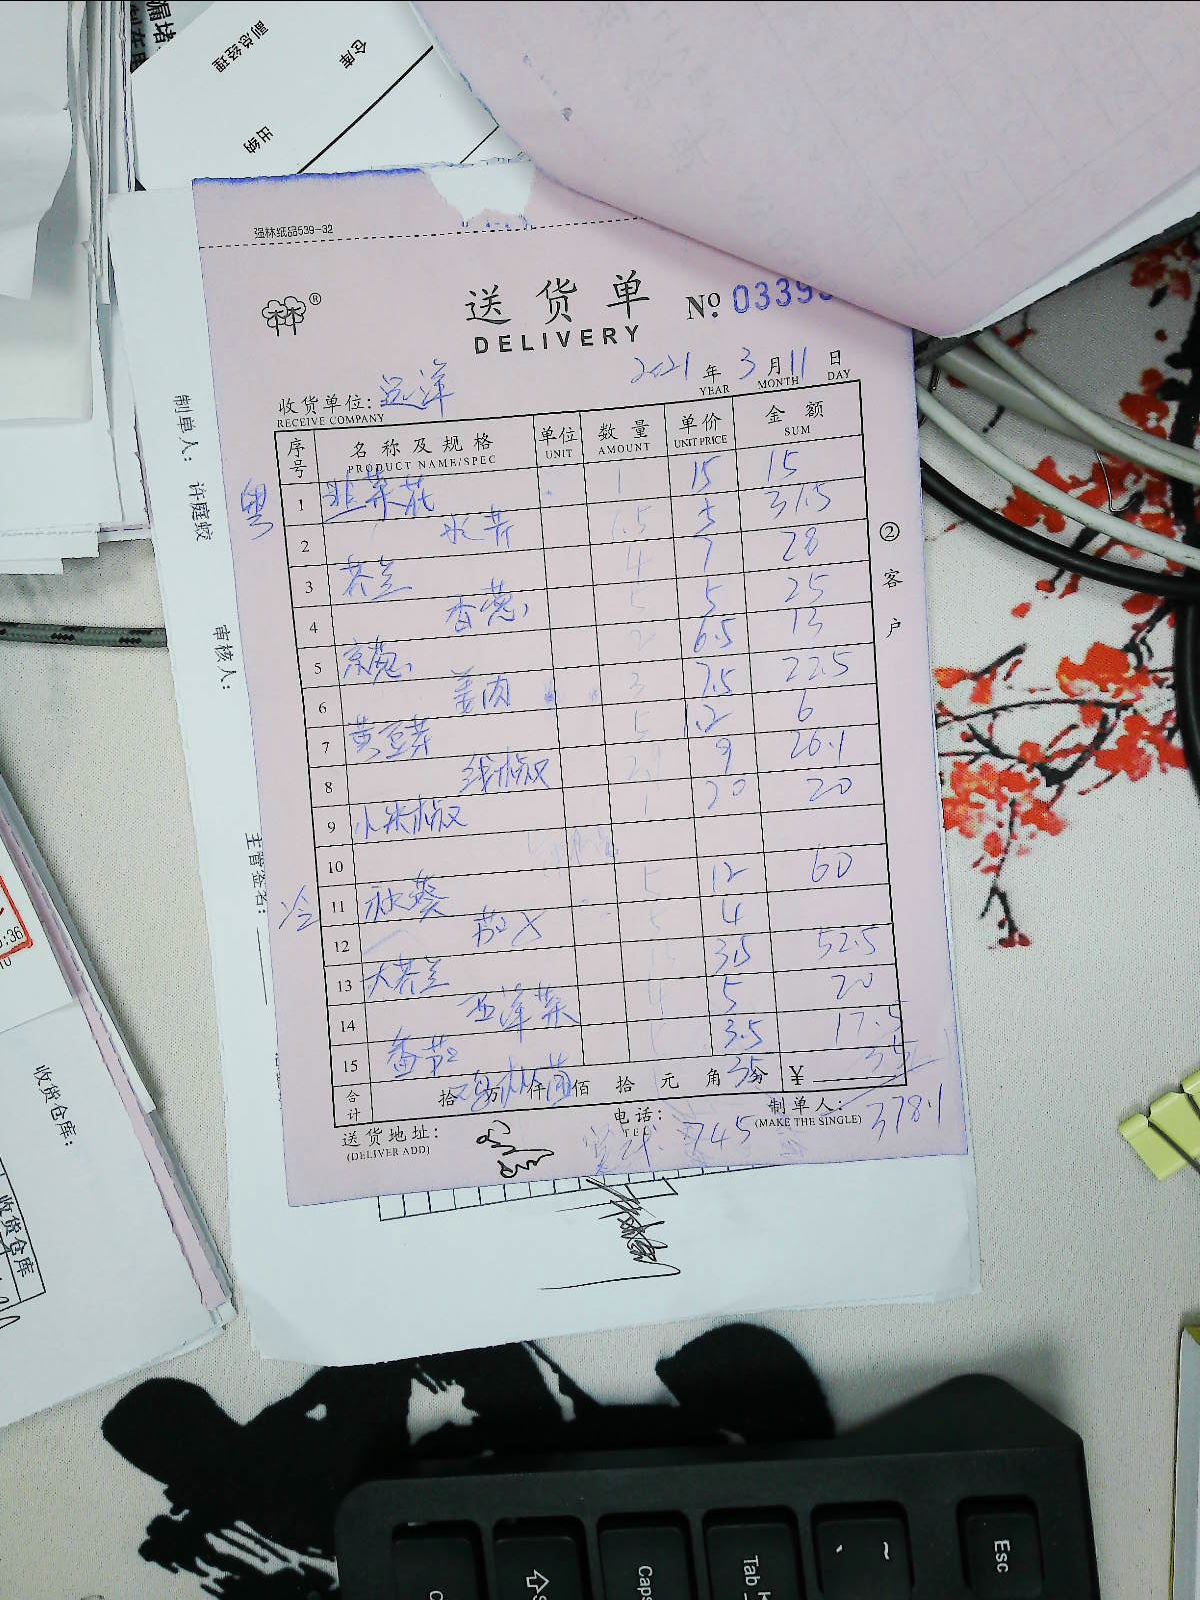 漏堵
副总经理
仓库
出纳
强林纸品539-32
送货单
DELIVERY
No 0339
2021 年 3 月 11 日
YEAR MONTH DAY
收货单位: 远洋
RECEIVE COMPANY
序号 名称及规格 单位 数量 单价 金额
PRODUCT NAME/SPEC UNIT AMOUNT UNIT PRICE SUM
粤
1 韭菜花 1 15 15
2 水芹 5 31.5
3 芥兰 4 7 28
4 香葱 5 5 25
5 京葱 2 6.5 13
6 姜肉 3 7.5 22.5
7 黄豆芽 5 1.2 6
8 线椒 9 26.1
9 小米椒 1 20 20
10
冷
11 秋葵 5 12 60
12 4
13 大芥兰 3.5 52.5
14 西洋菜 4 5 20
15 番茄 3.5 17.5
35
合计 拾 万 仟 佰 拾 元 角 分 ¥
送货地址:
(DELIVER ADD)
电话:
TEL
制单人:
(MAKE THE SINGLE)
378.1
745
②客户
制单人: 许庭蛟
审核人:
主管签名:
收货仓库:
收货仓库
:36
Caps
Tab
~
Esc